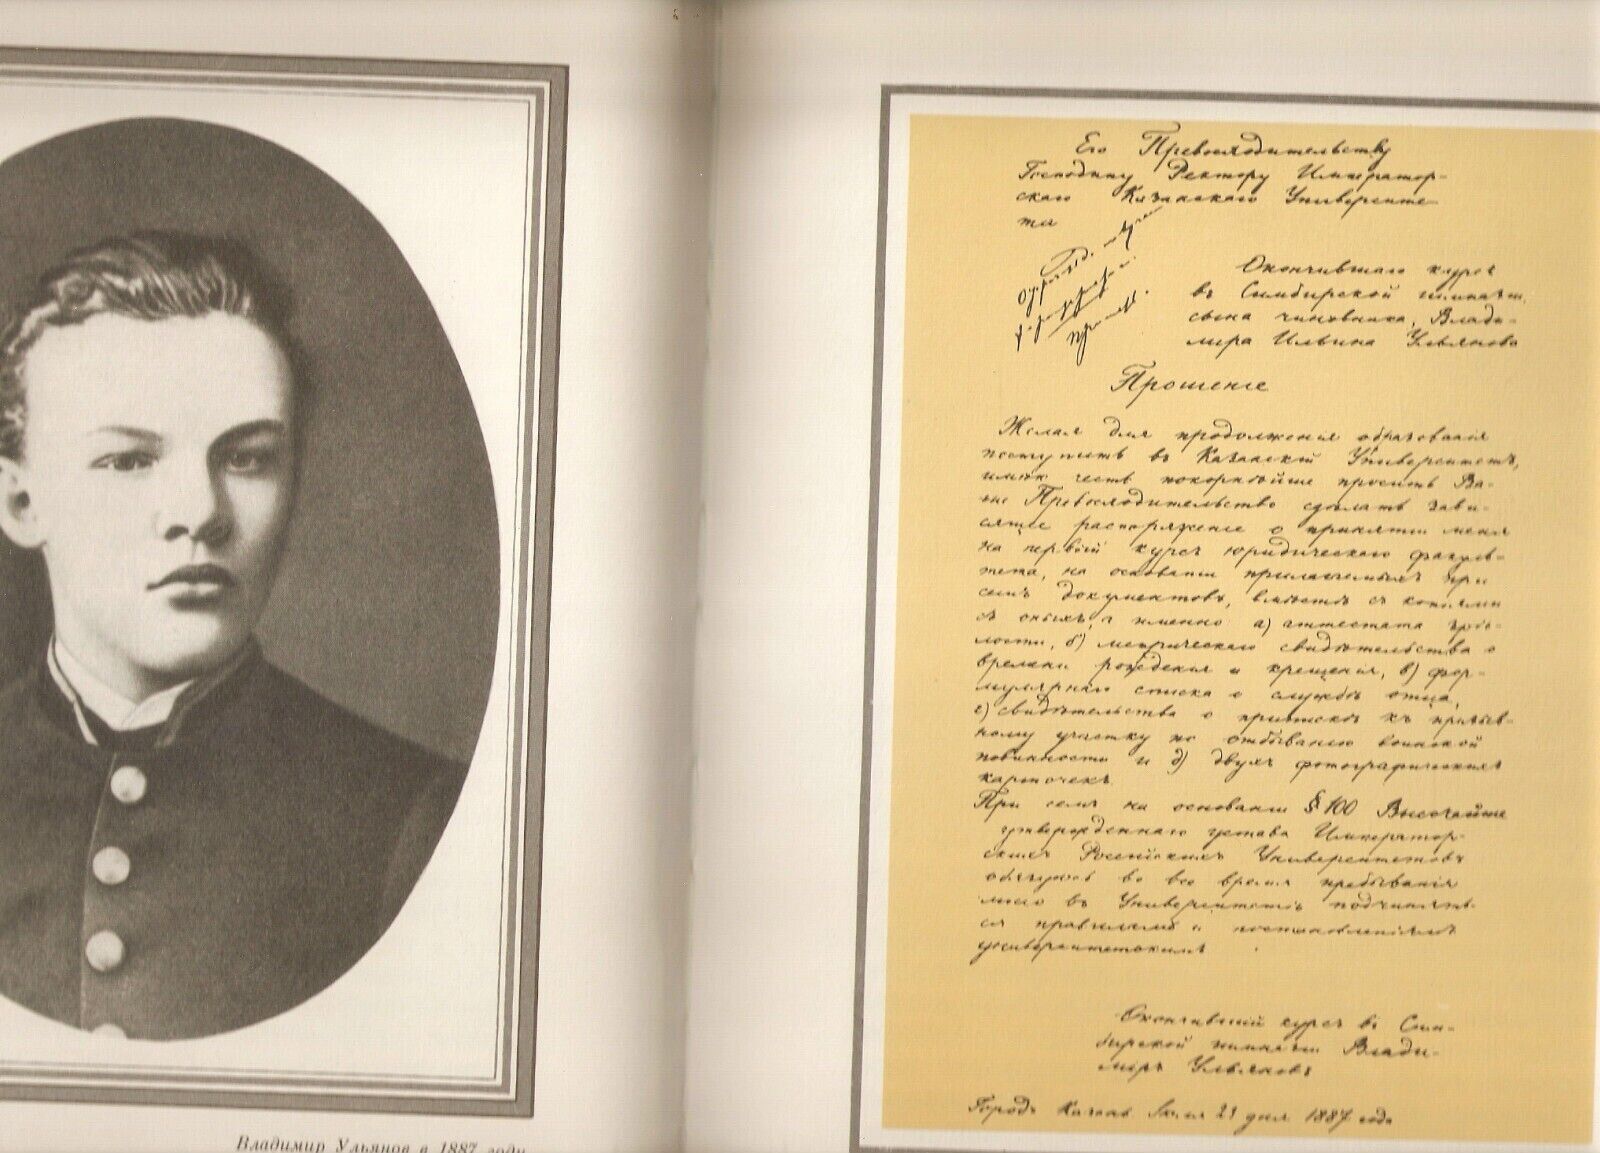 Владимир Ульянов в 1887 году
Его Превосходительству
Господину Ректору Император-
скаго Казанскаго Университе-
та
Окончившаго курсъ
въ Симбирской гимназіи,
сына чиновника, Влади-
мира Ильина Ульянова
Прошеніе
Желая для продолженія образованія
поступить въ Казанскій Университетъ,
имѣю честь покорнѣйше просить Ва-
ше Превосходительство сдѣлать зави-
сящее распоряженіе о принятіи меня
на первый курсъ юридическаго факуль-
тета, на основаніи прилагаемыхъ при
семъ документовъ, вмѣстѣ съ копіями
съ оныхъ, а именно: а) аттестата зрѣ-
лости, б) метрическаго свидѣтельства о
времени рожденія и крещенія, в) фор-
мулярнаго списка о службѣ отца,
г) свидѣтельства о припискѣ къ призыв-
ному участку по отбыванію воинской
повинности и д) двухъ фотографическихъ
карточекъ.
При семъ на основаніи § 100 Высочайше
утвержденнаго устава Император-
скихъ Россійскихъ Университетовъ
обязуюсь во все время пребыванія
моего въ Университетѣ подчинять-
ся правиламъ и постановленіямъ
университетскимъ
Окончившій курсъ въ Сим-
бирской гимназіи Влади-
міръ Ульяновъ
Городъ Казань Іюля 29 дня 1887 года